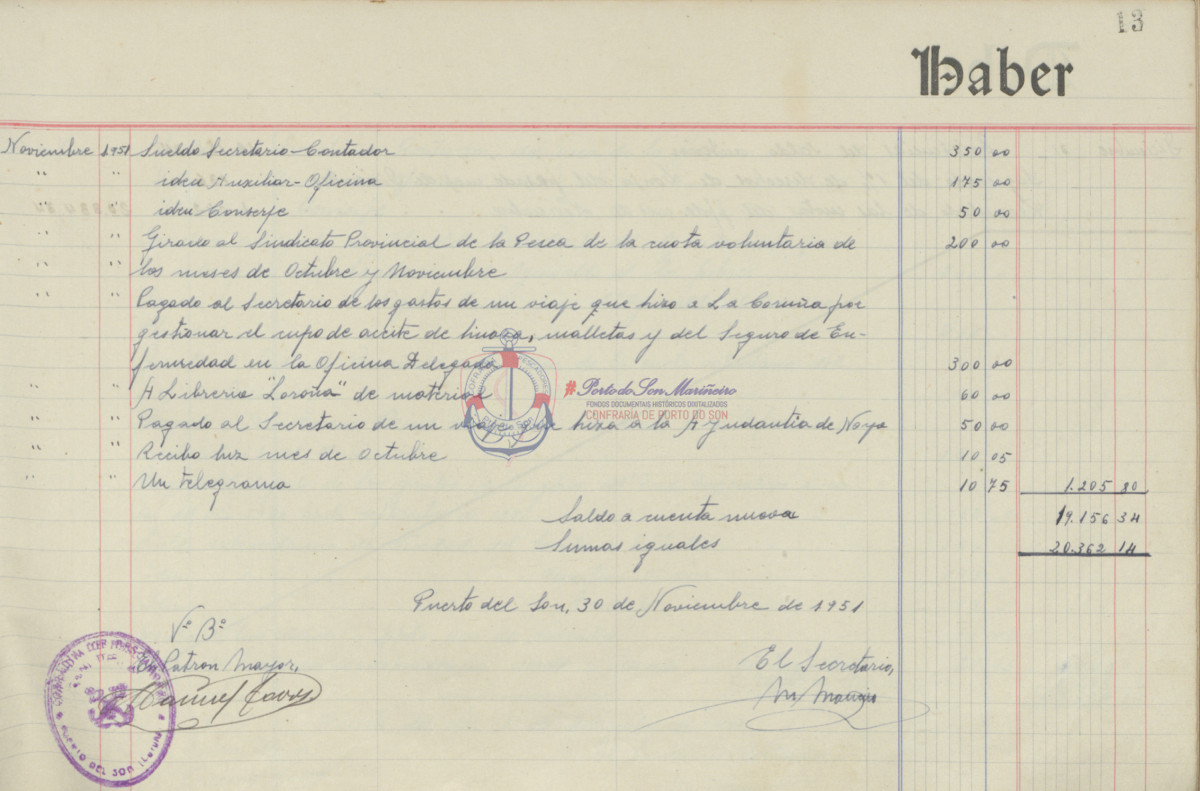 13
Haber
Noviembre 1951 Sueldo Secretario-Contador 350 00
" " idem Auxiliar-Oficina 175 00
" " idem Conserje 50 00
" " Girado al Sindicato Provincial de la Pesca de la cuota voluntaria de 200 00
" " los meses de Octubre y Noviembre
" " Pagado al Secretario de los gastos de un viaje que hizo a La Coruña por
gestionar el cupo de aceite de linaza, malletas y del Seguro de En-
fermedad en la Oficina Delegada 300 00
" " A Libreria "Loroña" de material 60 00
" " Pagado al Secretario de un viaje que hizo a la Ayudantia de Noya 50 00
" " Recibo luz mes de Octubre 10 05
" " Un telegrama 10 75 1.205 80
Saldo a cuenta nueva 19.156 34
Sumas iguales 20.362 14
Puerto del Son, 30 de Noviembre de 1951
Vº Bº
El Patron Mayor,
El Secretario,
Manuel
PUERTO DEL SON
# Porto do Son Mariñeiro
FONDOS DOCUMENTAIS HISTÓRICOS DIXITALIZADOS
CONFRARÍA DE PORTO DO SON